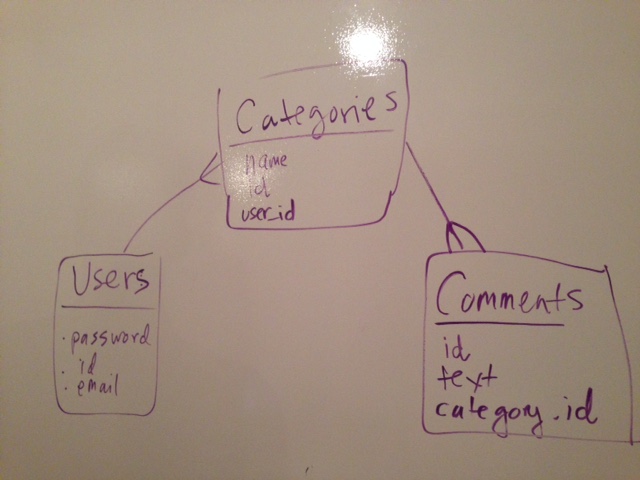 Categories
name
id
user_id
Users
. password
. id
. email
Comments
id
text
category.id